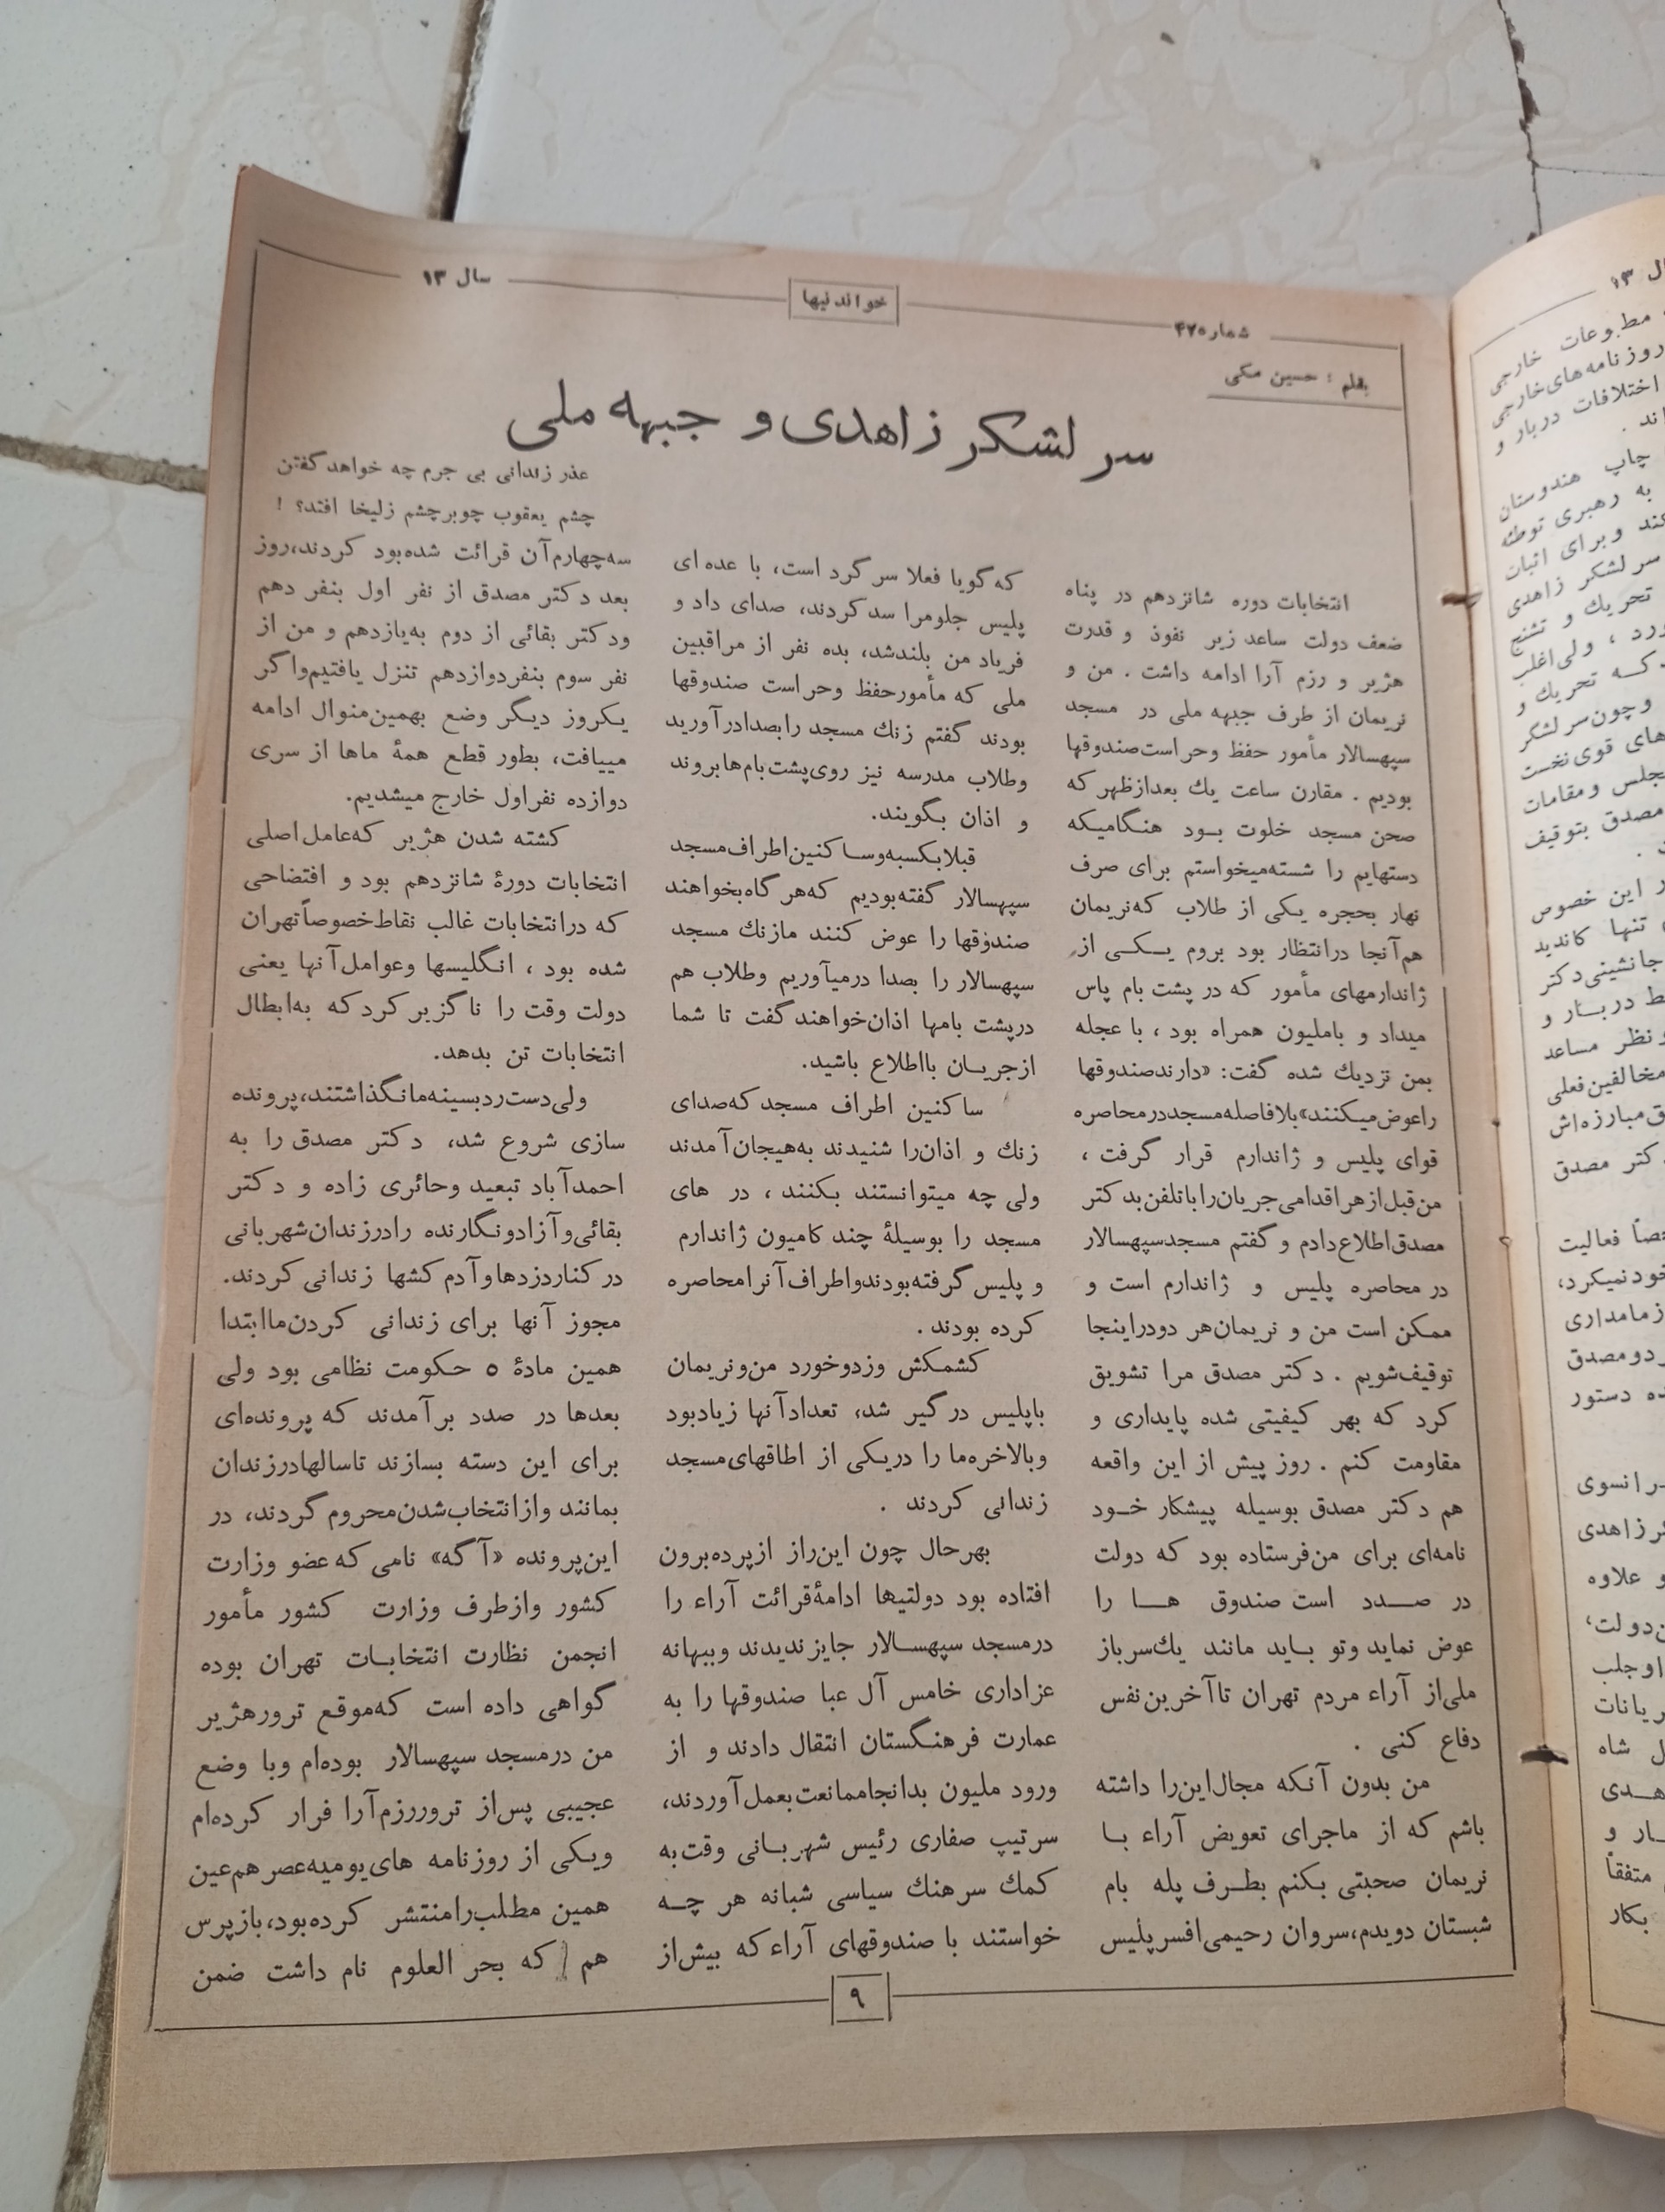 شماره ۴۷
خواندنیها
سال ۱۳
بقلم : حسین مکی
سر لشکر زاهدی و جبهه ملی
انتخابات دوره شانزدهم در پناه
ضعف دولت ساعد زیر نفوذ و قدرت
هژیر و رزم آرا ادامه داشت . من و
نریمان از طرف جبهه ملی در مسجد
سپهسالار مأمور حفظ وحراست صندوقها
بودیم . مقارن ساعت یك بعدازظهر که
صحن مسجد خلوت بود هنگامیکه
دستهایم را شسته میخواستم برای صرف
نهار بحجره یکی از طلاب که نریمان
هم آنجا درانتظار بود بروم یکی از
ژاندارمهای مأمور که در پشت بام پاس
میداد و باملیون همراه بود ، با عجله
بمن نزدیك شده گفت: «دارند صندوقها
راعوض میکنند» بلافاصله مسجد در محاصره
قوای پلیس و ژاندارم قرار گرفت ،
من قبل از هر اقدامی جریان را باتلفن بدکتر
مصدق اطلاع دادم و گفتم مسجد سپهسالار
در محاصره پلیس و ژاندارم است و
ممکن است من و نریمان هر دو در اینجا
توقیف شویم . دکتر مصدق مرا تشویق
کرد که بهر کیفیتی شده پایداری و
مقاومت کنم . روز پیش از این واقعه
هم دکتر مصدق بوسیله پیشکار خود
نامه‌ای برای من فرستاده بود که دولت
در صدد است صندوق ها را
عوض نماید وتو باید مانند یك سرباز
ملی از آراء مردم تهران تاآخرین نفس
دفاع کنی .
من بدون آنکه مجال این را داشته
باشم که از ماجرای تعویض آراء با
نریمان صحبتی بکنم بطرف پله بام
شبستان دویدم، سروان رحیمی افسر پلیس
که گویا فعلا سرگرد است، با عده ای
پلیس جلومرا سد کردند، صدای داد و
فریاد من بلندشد، بده نفر از مراقبین
ملی که مأمور حفظ وحراست صندوقها
بودند گفتم زنك مسجد را بصدا در آورید
وطلاب مدرسه نیز روی پشت بام‌ها بروند
و اذان بگویند.
قبلا بکسبه وساکنین اطراف مسجد
سپهسالار گفته بودیم که هر گاه بخواهند
صندوقها را عوض کنند مازنك مسجد
سپهسالار را بصدا درمیآوریم وطلاب هم
درپشت بامها اذان خواهند گفت تا شما
ازجریان بااطلاع باشید.
ساکنین اطراف مسجد که صدای
زنك و اذان را شنیدند به هیجان آمدند
ولی چه میتوانستند بکنند ، در های
مسجد را بوسیلهٔ چند کامیون ژاندارم
و پلیس گرفته بودند واطراف آنرا محاصره
کرده بودند .
کشمکش وزدوخورد من و نریمان
باپلیس در گیر شد، تعداد آنها زیاد بود
وبالاخره ما را دریکی از اطاقهای مسجد
زندانی کردند .
بهرحال چون این راز از پرده برون
افتاده بود دولتیها ادامهٔ قرائت آراء را
درمسجد سپهسالار جایز ندیدند وببهانه
عزاداری خامس آل عبا صندوقها را به
عمارت فرهنگستان انتقال دادند و از
ورود ملیون بدانجا ممانعت بعمل آوردند،
سرتیپ صفاری رئیس شهربانی وقت به
کمك سرهنك سیاسی شبانه هر چه
خواستند با صندوقهای آراء که بیش از
عذر زندانی بی جرم چه خواهد گفتن
چشم یعقوب چوبرچشم زلیخا افتد؟ !
سه چهارم آن قرائت شده بود کردند، روز
بعد دکتر مصدق از نفر اول بنفر دهم
ودکتر بقائی از دوم به یازدهم و من از
نفر سوم بنفر دوازدهم تنزل یافتیم واگر
یکروز دیگر وضع بهمین منوال ادامه
مییافت، بطور قطع همهٔ ماها از سری
دوازده نفر اول خارج میشدیم.
کشته شدن هژیر که عامل اصلی
انتخابات دورهٔ شانزدهم بود و افتضاحی
که درانتخابات غالب نقاط خصوصاً تهران
شده بود ، انگلیسها وعوامل آنها یعنی
دولت وقت را ناگزیر کرد که به ابطال
انتخابات تن بدهد.
ولی دست رد بسینه ما نگذاشتند، پرونده
سازی شروع شد، دکتر مصدق را به
احمدآباد تبعید وحائری زاده و دکتر
بقائی و آزاد و نگارنده را درزندان شهربانی
در کنار دزدها و آدم کشها زندانی کردند.
مجوز آنها برای زندانی کردن ما ابتدا
همین مادهٔ ۵ حکومت نظامی بود ولی
بعدها در صدد برآمدند که پرونده‌ای
برای این دسته بسازند تا سالها درزندان
بمانند واز انتخاب شدن محروم گردند، در
این پرونده «آگه» نامی که عضو وزارت
کشور وازطرف وزارت کشور مأمور
انجمن نظارت انتخابات تهران بوده
گواهی داده است که موقع ترور هژیر
من درمسجد سپهسالار بوده‌ام وبا وضع
عجیبی پس از ترور رزم آرا فرار کرده‌ام
ویکی از روزنامه های یومیه عصر هم عین
همین مطلب را منتشر کرده بود، بازپرس
هم که بحر العلوم نام داشت ضمن
۹
مطبوعات خارجی
روزنامه‌های خارجی
اختلافات دربار و
چاپ هندوستان
به رهبری توطئه
کند وبرای اثبات
سر لشکر زاهدی
تحریك و تشنج
ولی اغلب
که تحریك و
وچون سر لشکر
های قوی نخست
مجلس و مقامات
مصدق بتوقیف
این خصوص
تنها کاندید
جانشینی دکتر
دربار و
نظر مساعد
مخالفین فعلی
مبارزه‌اش
دکتر مصدق
فعالیت
خودنمیکرد،
زمامداری
مصدق
دستور
زاهدی
و علاوه
شاه
و
متفقاً
بکار